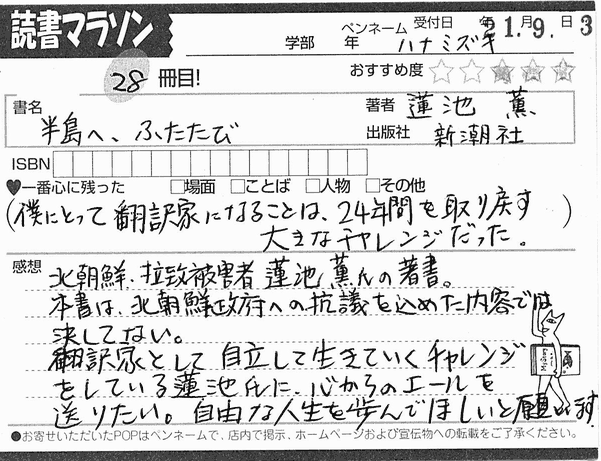 読書マラソン
学部 年 ペンネーム ハナミズキ 受付日 年 1月 9日
28 冊目!
おすすめ度 ☆☆★★★
書名 半島へ、ふたたび
著者 蓮池 薫
出版社 新潮社
ISBN
♥一番心に残った □場面 □ことば □人物 □その他
(僕にとって翻訳家になることは、24年間を取り戻す
大きなチャレンジだった。)
感想
北朝鮮、拉致被害者 蓮池 薫氏の著書。
本書は、北朝鮮政府への抗議を込めた内容では
決してない。
翻訳家として 自立して生きていく チャレンジ
をしている蓮池氏に、心からのエールを
送りたい。自由な人生を歩んでほしいと願います
●お寄せいただいたPOPはペンネームで、店内で掲示、ホームページおよび宣伝物への転載をご了承ください。